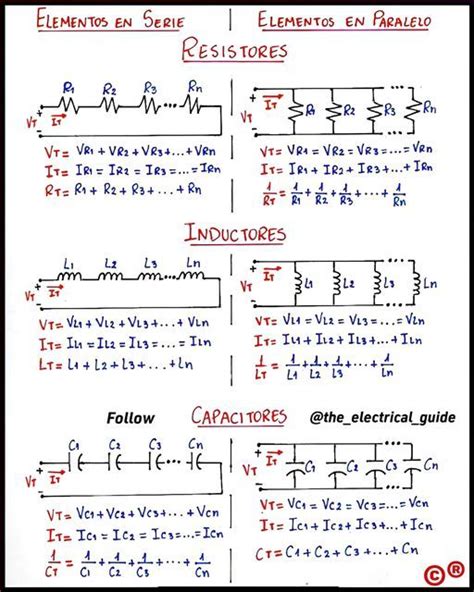 ELEMENTOS EN SERIE
ELEMENTOS EN PARALELO
RESISTORES
R1 R2 R3 ... Rn
VT IT + -
VT = VR1 + VR2 + VR3 + ... + VRn
IT = IR1 = IR2 = IR3 = ... = IRn
RT = R1 + R2 + R3 + ... + Rn
VT IT + - R1 R2 R3 ... Rn
VT = VR1 = VR2 = VR3 = ... = VRn
IT = IR1 + IR2 + IR3 + ... + IRn
1/RT = 1/R1 + 1/R2 + 1/R3 + ... + 1/Rn
INDUCTORES
L1 L2 L3 ... Ln
VT IT + -
VT = VL1 + VL2 + VL3 + ... + VLn
IT = IL1 = IL2 = IL3 = ... = ILn
LT = L1 + L2 + L3 + ... + Ln
VT IT + - L1 L2 L3 ... Ln
VT = VL1 = VL2 = VL3 = ... = VLn
IT = IL1 + IL2 + IL3 + ... + ILn
1/LT = 1/L1 + 1/L2 + 1/L3 + ... + 1/Ln
Follow CAPACITORES @the_electrical_guide
C1 C2 C3 ... Cn
VT IT + -
VT = VC1 + VC2 + VC3 + ... + VCn
IT = IC1 = IC2 = IC3 = ... = ICn
1/CT = 1/C1 + 1/C2 + 1/C3 + ... + 1/Cn
VT IT + - C1 C2 C3 ... Cn
VT = VC1 = VC2 = VC3 = ... = VCn
IT = IC1 + IC2 + IC3 + ... + ICn
CT = C1 + C2 + C3 + ... + Cn
© ®